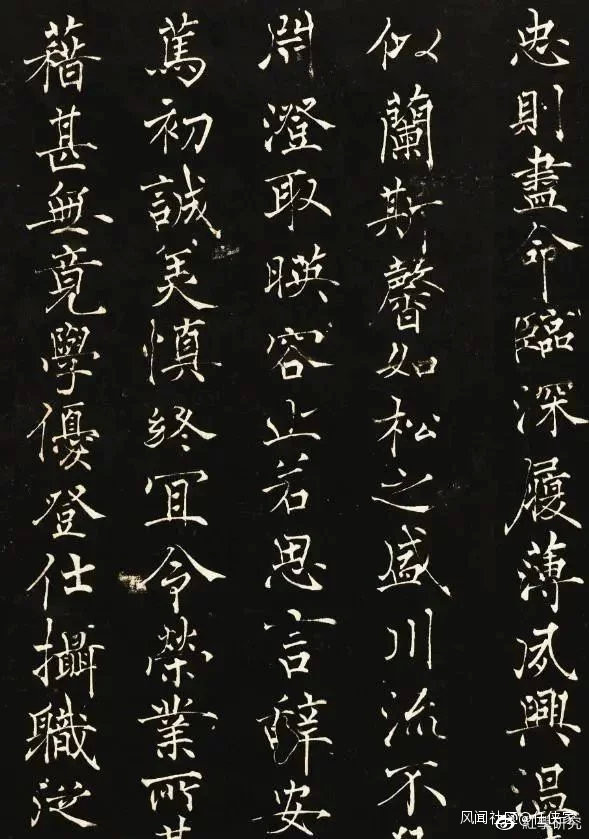 忠則盡命臨深履薄夙興温
似蘭斯馨如松之盛川流不
淵澄取暎容止若思言辭安
篤初誠美慎終宜令榮業所
藉甚無竟學優登仕攝職從
风闻社区@任佳家